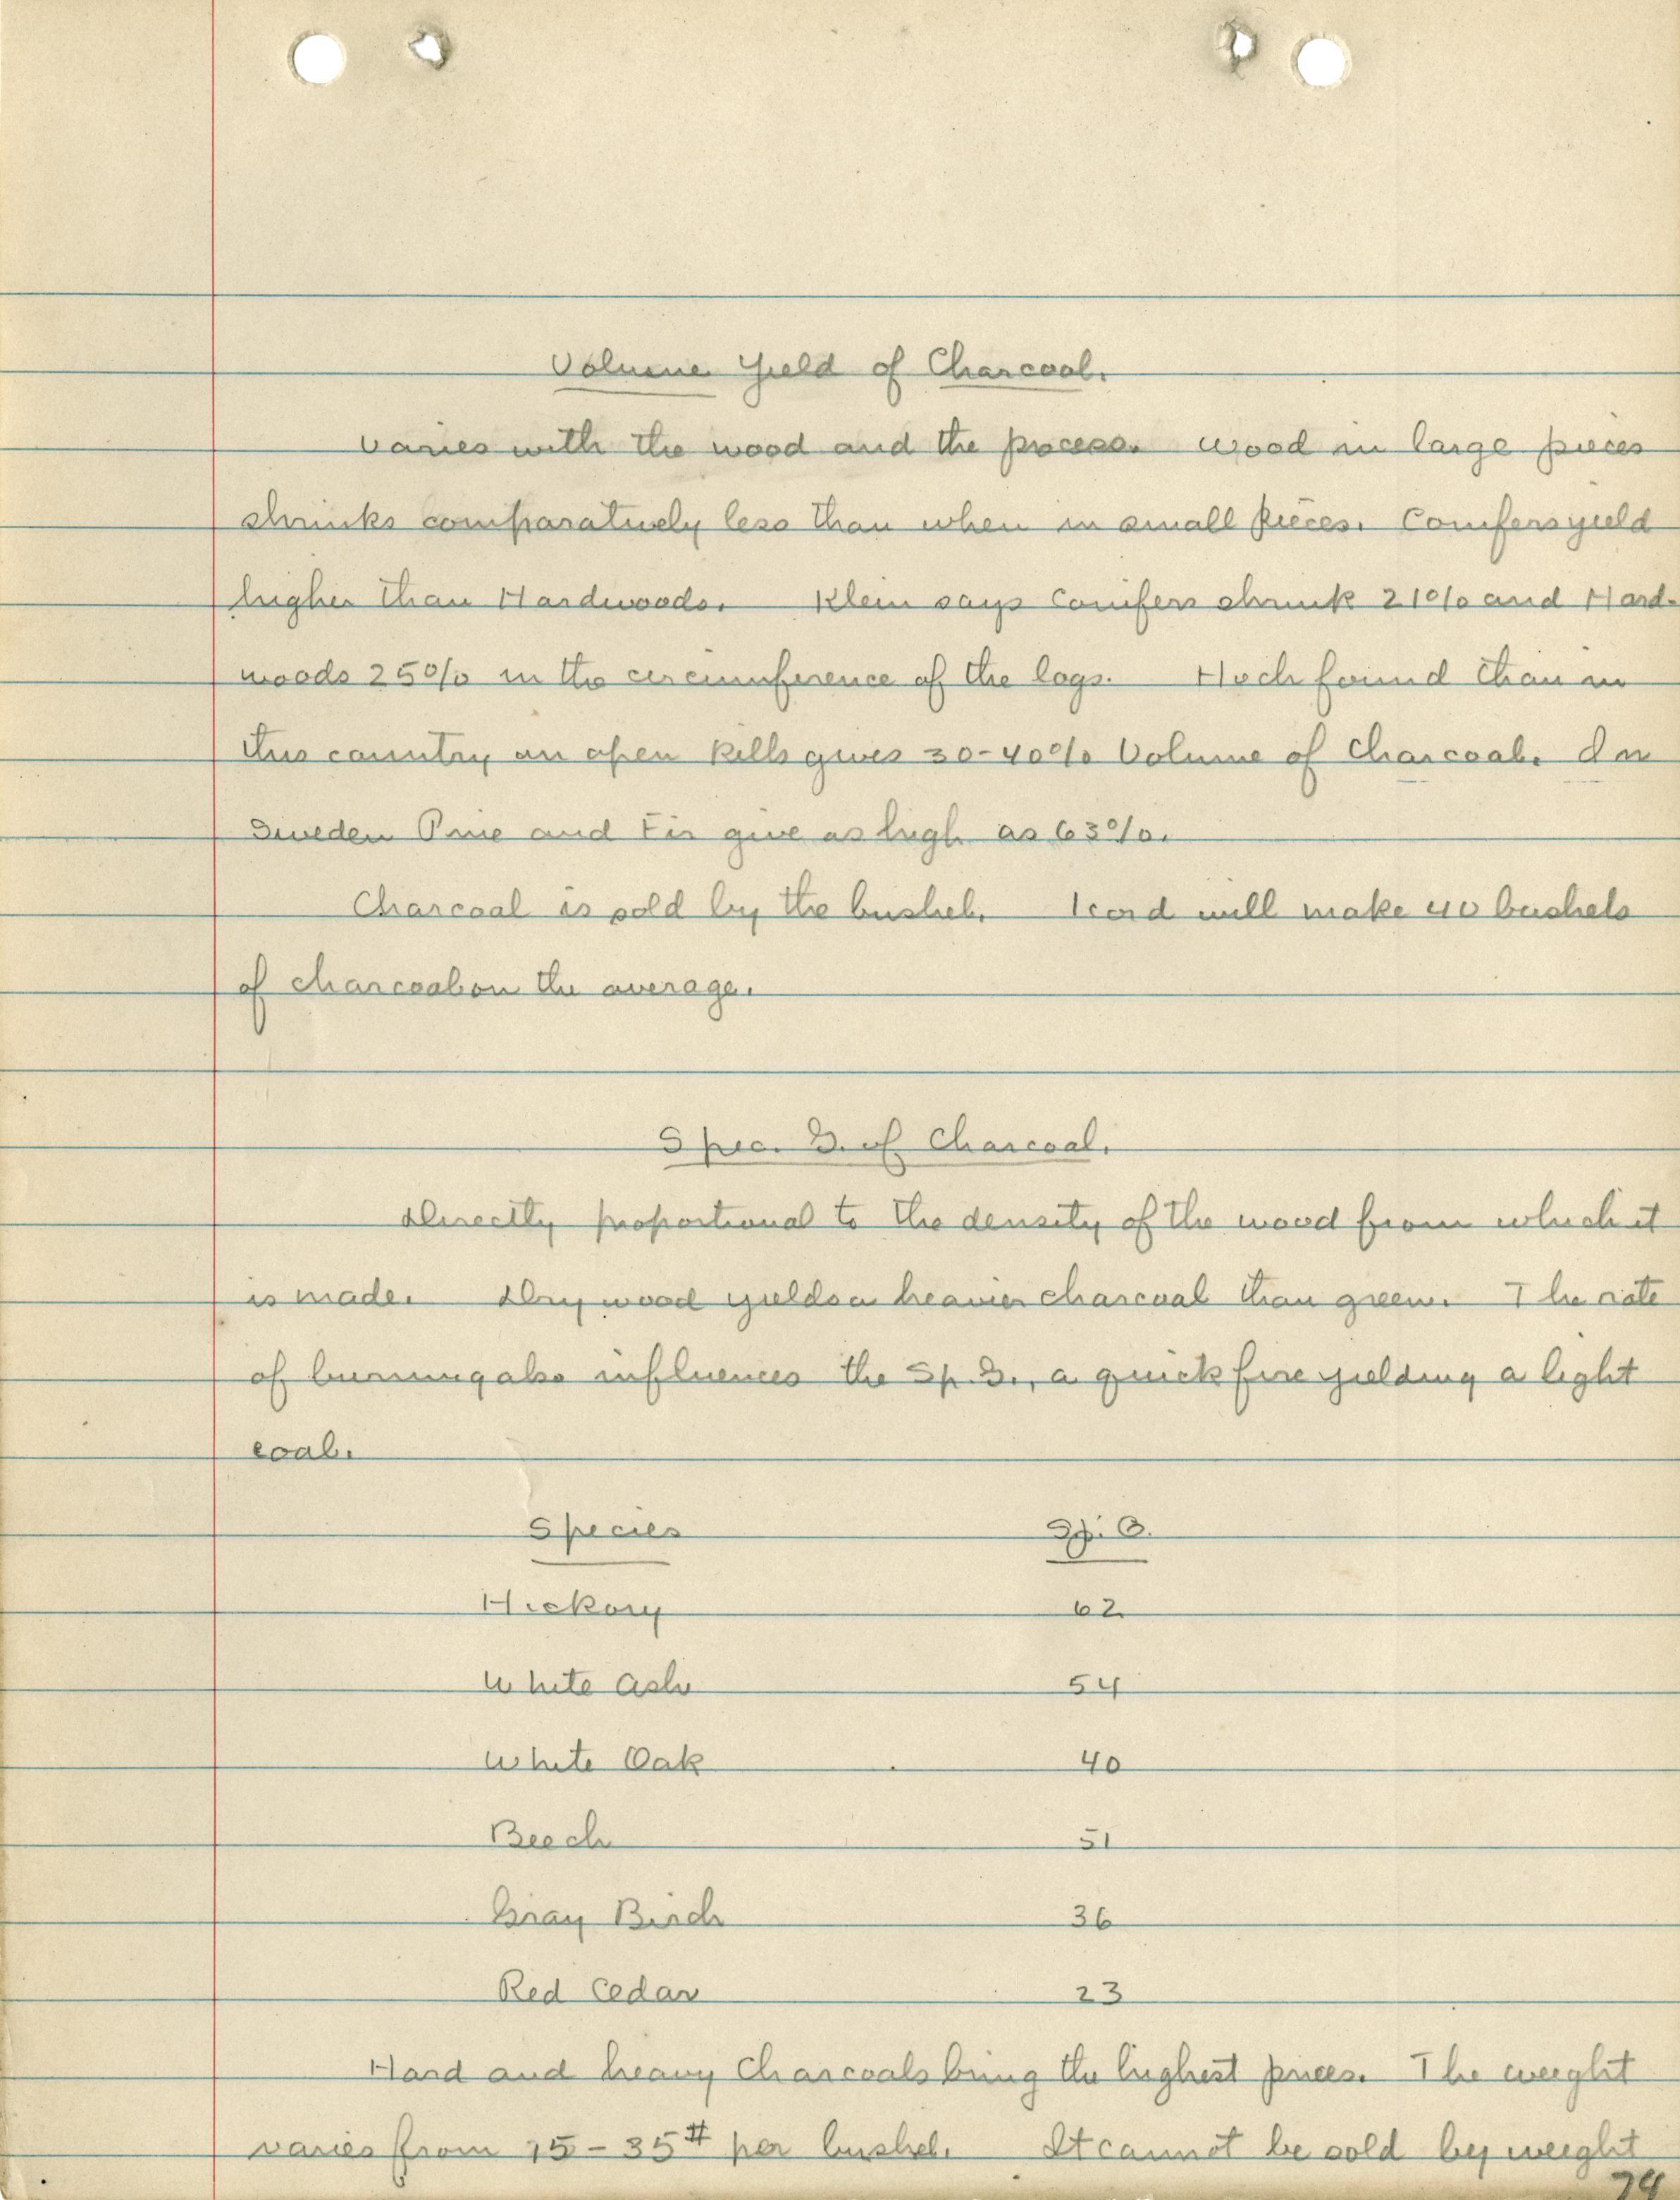 Volume Yield of Charcoal.
Varies with the wood and the process. Wood in large pieces
shrinks comparatively less than when in small pieces. Conifers yield
higher than Hardwoods. Klein says Conifers shrink 21% and Hard-
woods 25% in the circumference of the logs. Hoch found than in
this country an open Kells gives 30-40% Volume of Charcoal. In
Sweden Pine and Fir give as high as 63%.
Charcoal is sold by the bushel. 1 cord will make 40 bushels
of charcoal on the average.
Spec. G. of Charcoal.
Directly proportional to the density of the wood from which it
is made. Dry wood yields a heavier charcoal than green. The rate
of burning also influences the Sp. G., a quick fire yielding a light
coal.
Species Sp. G.
Hickory 62
White Ash 54
White Oak 40
Beech 51
Gray Birch 36
Red Cedar 23
Hard and heavy Charcoals bring the highest prices. The weight
varies from 15-35# per bushel. It cannot be sold by weight